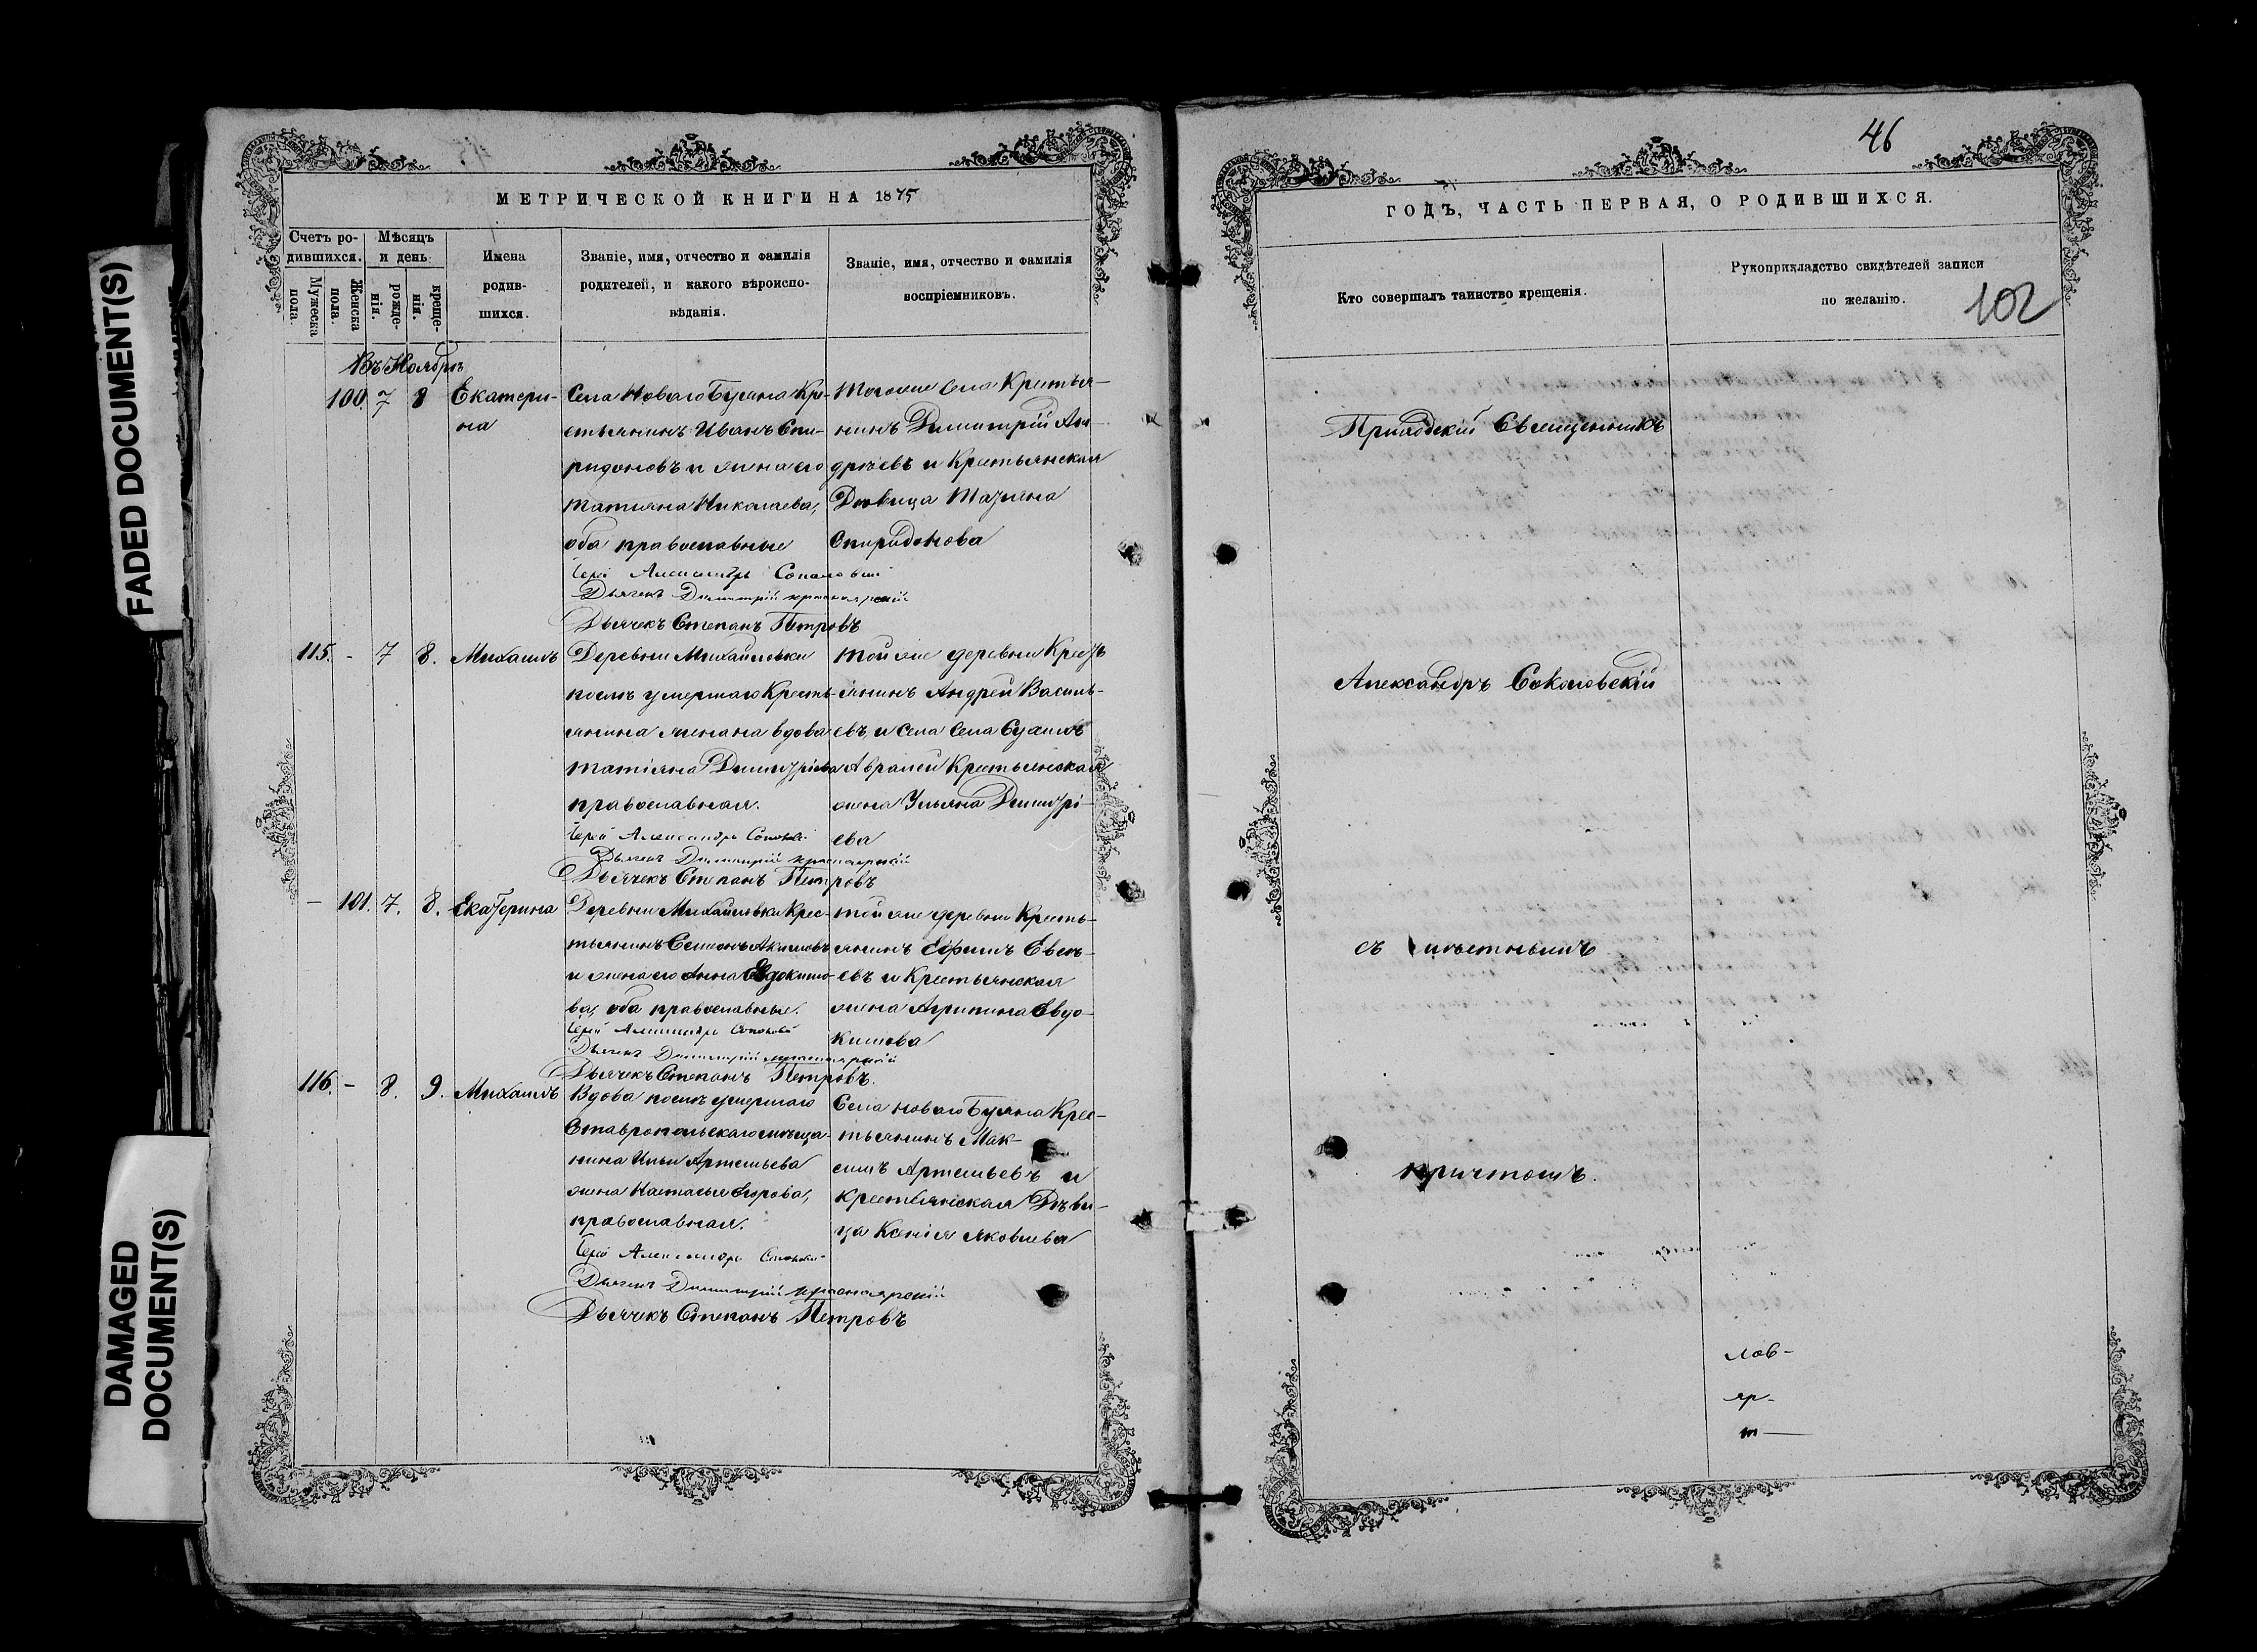 FADED DOCUMENT(S)
DAMAGED
DOCUMENT(S)
МЕТРИЧЕСКОЙ КНИГИ НА 1875
Счетъ ро-
дившихся.
Мужеска
пола.
Женска
пола.
Мѣсяцъ
и день
рожде-
нія.
креще-
нія.
Имена
родив-
шихся.
Званіе, имя, отчество и фамилія
родителей, и какого вѣроиспо-
вѣданія.
Званіе, имя, отчество и фамилія
воспріемниковъ.
Въ Ноябрѣ
100. 7 8
Екатери-
на
Села Новаго Буяна Кре-
стьянинъ Иванъ Спи-
ридоновъ и жена его
Татіяна Николаева,
оба православные
Тогоже села Крестья-
нинъ Димитрій Ан-
дреевъ и Крестьянская
Дѣвица Татіяна
Спиридонова
Іерей Александръ Соколовскій
Дьячекъ Димитрій Красноярскій
Дьячекъ Степанъ Петровъ
115. - 7 8. Михаилъ
Деревни Михайловки
послѣ умершаго Кресть-
янина жена вдова
Татіяна Димитріева
православная.
Той же деревни Крест
янинъ Андрей Василь-
евъ, и села
Крестьянская
жена Ульяна Димитрі-
ева
Іерей Александръ
Дьячекъ Димитрій Красноярскій
Дьячекъ Степанъ Петровъ
- 101. 7. 8. Екатерина
Деревни Михайловки Крес-
тьянинъ Семенъ Акимовъ
и жена его Анна Евдокимо-
ва, оба православные.
Той же деревни Кресть-
янинъ Ефимъ Евсѣ-
евъ и Крестьянская
жена Агрипина Евдо-
кимова
Іерей Александръ
Дьячекъ Димитрій Красноярскій
Дьячекъ Степанъ Петровъ.
116. - 8. 9. Михаилъ
Вдова послѣ умершаго
Ставропольскаго мѣща-
нина Ильи Артемьева
жена Настасья Егорова,
православная.
Села Новаго Буяна Крес-
тьянинъ Мак-
симъ Артемьевъ и
крестьянская Дѣви-
ца Ксенія Яковлева
Іерей Александръ
Дьячекъ Димитрій Красноярскій
Дьячекъ Степанъ Петровъ
46
ГОДЪ, ЧАСТЬ ПЕРВАЯ, О РОДИВШИХСЯ.
Кто совершалъ таинство крещенія.
Рукоприкладство свидѣтелей записи
по желанію.
102
Приходскій Священникъ
Александръ Соколовскій
съ мѣстнымъ
причтомъ.
лов-
яр-
т-